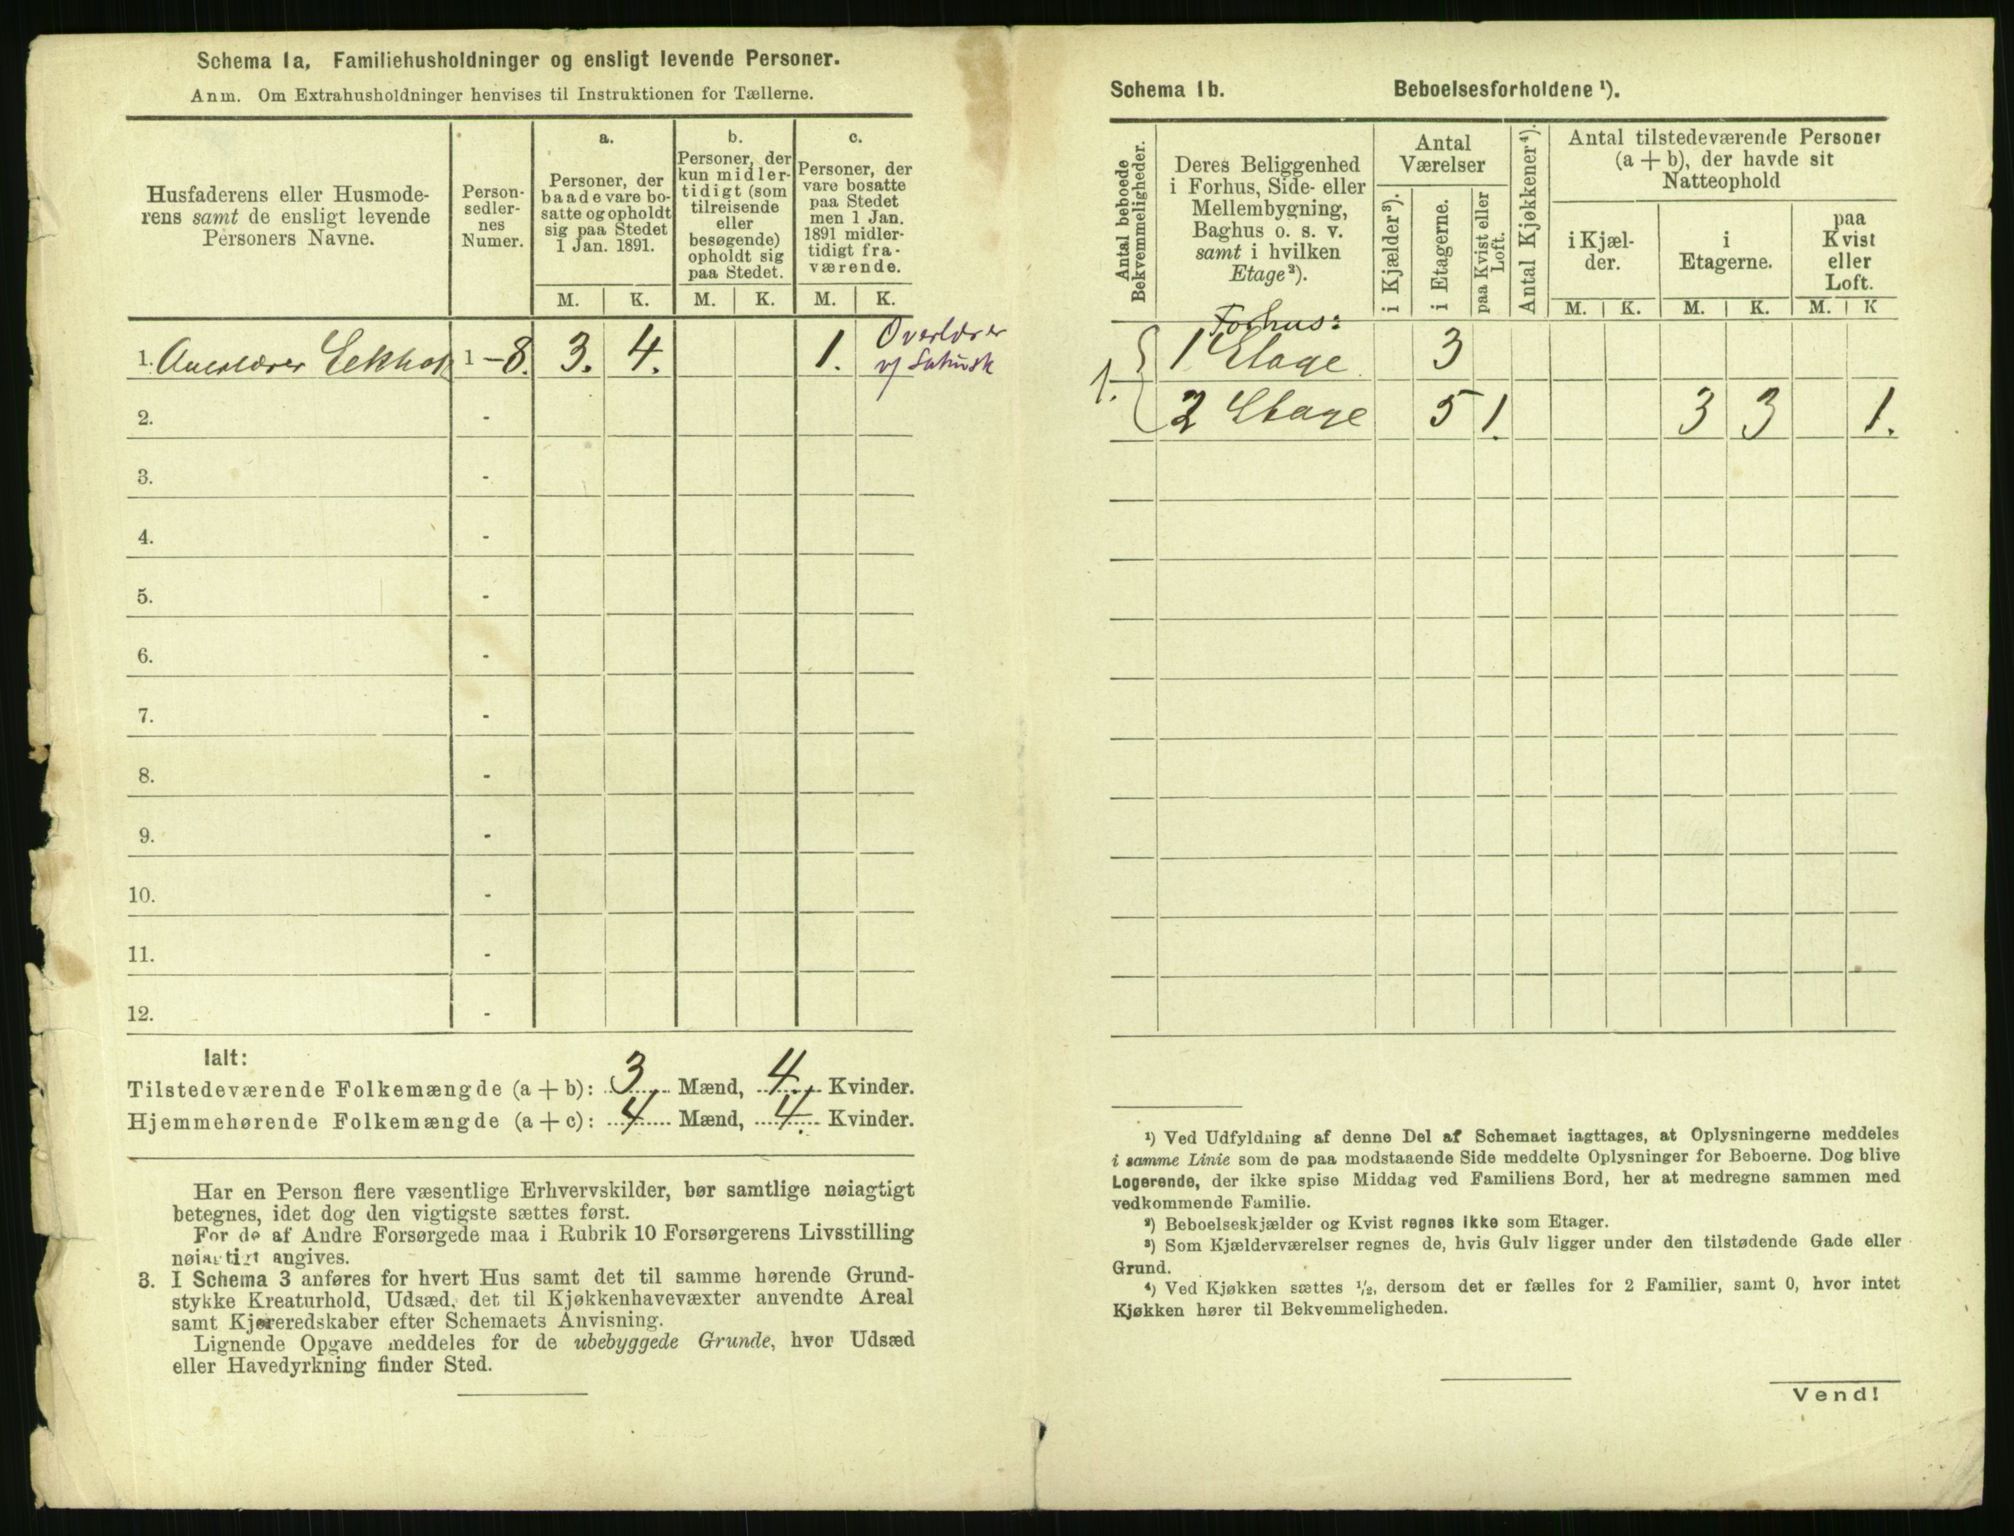 Schema 1a. Familiehusholdninger og ensligt levende Personer.
Anm. Om Extrahusholdninger henvises til Instruktionen for Tællerne.
Husfaderens eller Husmode-
rens samt de ensligt levende
Personers Navne.
Person-
sedler-
nes
Numer.
a.
Personer, der
baade vare bo-
satte og opholdt
sig paa Stedet
1 Jan. 1891.
b.
Personer, der
kun midler-
tidigt (som
tilreisende
eller
besøgende)
opholdt sig
paa Stedet.
c.
Personer, der
vare bosatte
paa Stedet
men 1 Jan.
1891 midler-
tidigt fra-
værende.
M. K. M. K. M. K.
1. Overlærer Eckhof 1 - 8. 3. 4. 1. Overlærer
v/
2. -
3. -
4. -
5. -
6. -
7. -
8. -
9. -
10. -
11. -
12. -
Ialt:
Tilstedeværende Folkemængde (a + b): 3 Mænd, 4 Kvinder.
Hjemmehørende Folkemængde (a + c): 4 Mænd, 4. Kvinder.
Har en Person flere væsentlige Erhvervskilder, bør samtlige nøiagtigt
betegnes, idet dog den vigtigste sættes først.
For de af Andre Forsørgede maa i Rubrik 10 Forsørgerens Livsstilling
nøiagtigt angives.
3. I Schema 3 anføres for hvert Hus samt det til samme hørende Grund-
stykke Kreaturhold, Udsæd, det til Kjøkkenhavevæxter anvendte Areal
samt Kjøreredskaber efter Schemaets Anvisning.
Lignende Opgave meddeles for de ubebyggede Grunde, hvor Udsæd
eller Havedyrkning finder Sted.
Schema 1b. Beboelsesforholdene ¹).
Antal beboede
Bekvemmeligheder.
Deres Beliggenhed
i Forhus, Side- eller
Mellembygning,
Baghus o. s. v.
samt i hvilken
Etage²).
Antal
Værelser
i Kjælder³).
i Etagerne.
paa Kvist eller
Loft.
Antal Kjøkkener⁴).
Antal tilstedeværende Personer
(a + b), der havde sit
Natteophold
i Kjæl-
der.
i
Etagerne.
paa
Kvist
eller
Loft.
M. K. M. K. M. K
Forhus:
1. 1 Etage 3
2 Etage 5 1. 3 3 1.
¹) Ved Udfyldning af denne Del af Schemaet iagttages, at Oplysningerne meddeles
i samme Linie som de paa modstaaende Side meddelte Oplysninger for Beboerne. Dog blive
Logerende, der ikke spise Middag ved Familiens Bord, her at medregne sammen med
vedkommende Familie.
²) Beboelseskjælder og Kvist regnes ikke som Etager.
³) Som Kjælderværelser regnes de, hvis Gulv ligger under den tilstødende Gade eller
Grund.
⁴) Ved Kjøkken sættes ½, dersom det er fælles for 2 Familier, samt 0, hvor intet
Kjøkken hører til Bekvemmeligheden.
Vend!